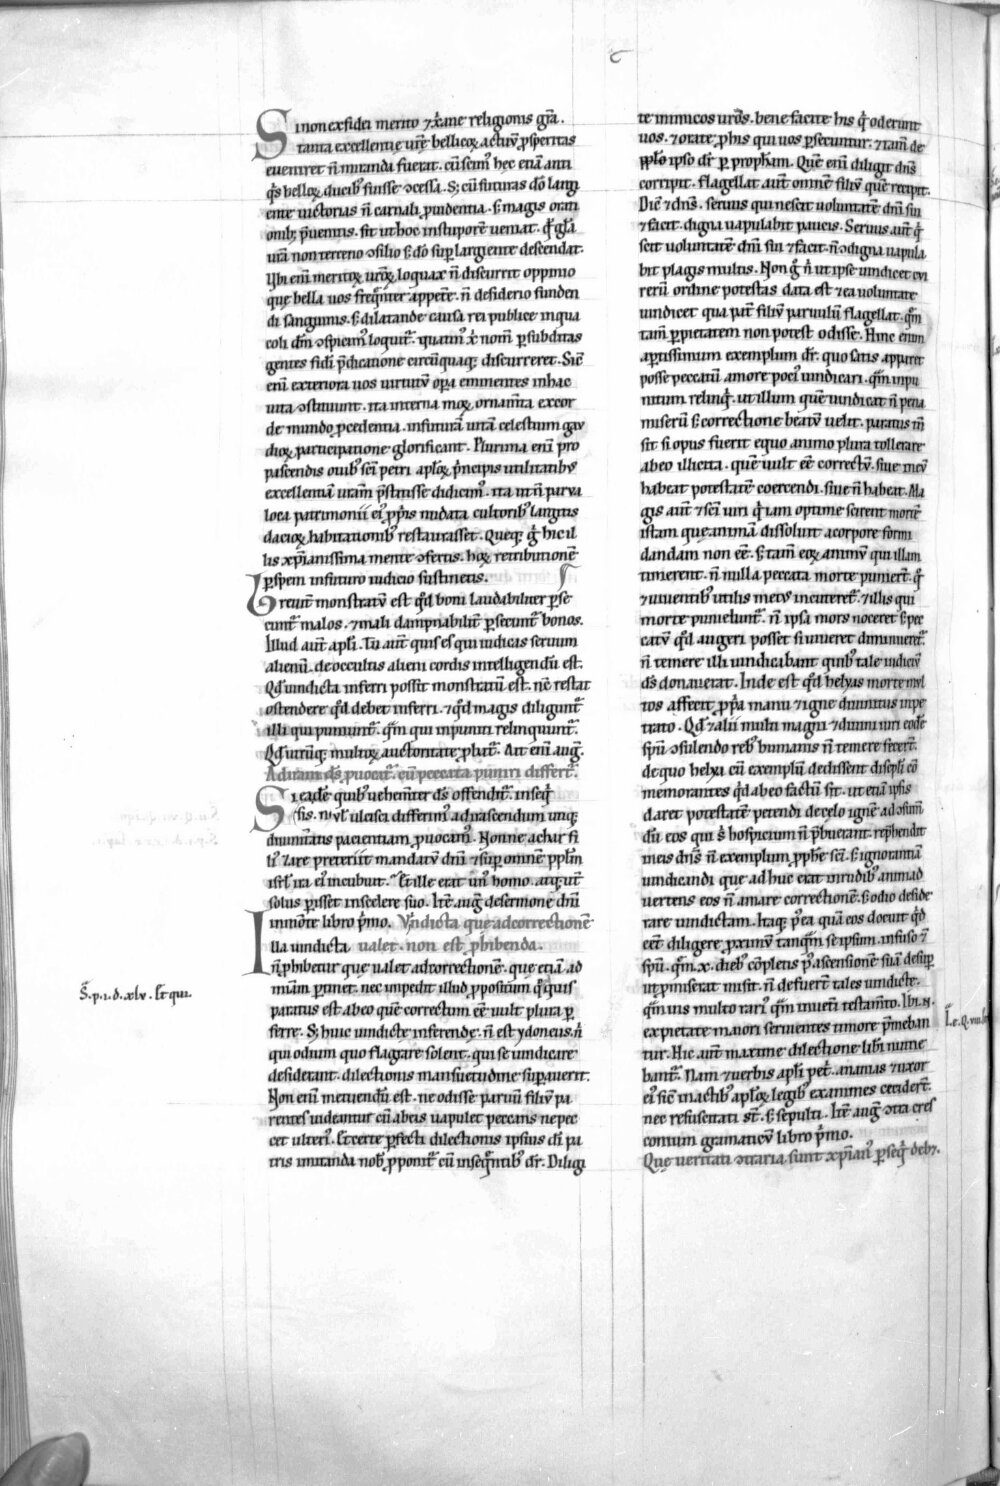 Si non ex fidei merito ⁊ xp̄iane religionis gr̄a.
tanta excellentie ur̄e bellicoꝝ actuū ꝓsperitas
eueniret n̄ miranda fuerat. cū sciam᷒ hec etiā anti
q̄s belloꝝ ducib᷒ fuisse ꝯcessa. Sꝫ cū futuras dō largi
ente uictorias n̄ carnali ꝓuidentia. s; magis orati
onib᷒ p̄uenitis. fit ut hoc in stuporē ueniat. qd̓ gl̄a
ur̄a non terreno ꝯsilio s; dō suꝑ largiente descendat.
Vbi eni meritoꝝ ur̄oꝝ loquax n̄ discurrit oppinio
que bella uos freq̄nter appetē. n̄ desiderio funden
di sanguinis. s; dilatande causa rei publice in qua
coli dm̄ ꝯspicim᷒ loquit᷑. quatin᷒ xp̄i nom̄ ꝑ subditas
gentes fidei p̄dicatione circūquaq; discurreret. Sic
eni exteriora uos uirtutū oꝑa eminentes in hac
uita ꝯstituunt. ita interna moꝝ ornam̄ta ex cor
de mundo ꝓcedentia. in futurā uitā celestium gau
dioꝝ participatione glorificant. Plurima enī pro
pascendis ouib᷒ sc̄i petri apl̄oꝝ p̄ncipis utilitatib᷒
excellentiā ur̄am p̄stitisse didicim᷒. ita ut n̄ parua
loca patrimonii ei᷒ ꝓpriis nudata cultorib᷒ largitis
daticioꝝ habitationib᷒ restaurasset. Queq; g̊ hic il
lis xp̄ianissima mente ꝯfertis. hoꝝ retributionē
ꝑ spem in futuro iudicio sustinetis.
Breuit̓ monstratū est qd̓ boni laudabiliter ꝑse
cunt᷑ malos. ⁊ mali dampnabilit̓ ꝑsecunt᷑ bonos.
Illud aut̄ apl̓i. Tu aut̄ quis es qui iudicas seruum
alienū. de occultis alieni cordis intelligendū est.
Qd̓ uindicta inferri possit monstratū est. nc̄ restat
ostendere qd̓ debet inferri. ⁊ qd̓ magis diligunt᷑
illi qui puniunt᷑. q̄m qui inpuniti relinquunt᷑.
Qd̓ utrūq; multoꝝ auctoritate ꝓbat᷑. Ait eni aug̓.
Ad iram ds̄ puocat᷑. cū peccata puniri differt᷑.
Si ea de quib᷒ uehemt̓er ds̄ offendit᷑. inseq̄
ut̓ ulcisci differim᷒. ad irascendum utiq;
diuinitatis pacientiam ꝓuocam᷒. Nonne achar fi
li᷒ zare preteriit mandatū dn̄i ⁊ suꝑ omnē ppl̄m
isrl̓ ira ei᷒ incubuit. Et ille erat un᷒ homo. atq; ut
solus ꝑisset in scelere suo. Itē aug̓ de sermone dn̄i
in monte libro p̄mo. Vindicta que ad correctionē
ualet. non est ꝓhibenda.
Illa uindicta
n̄ ꝓhibetur que ualet ad correctionē. que etiā ad
mīam ꝑtinet. nec impedit illud ꝓpositum q̊ quis
paratus est ab eo que correctum eē uult plura ꝑ
ferre. Sꝫ huic uindicte inferende. n̄ est ydoneus. n̄
qui odium quo flagrare solent. qui se uindicare
desiderant. dilectionis mansuetudine suꝑauerit.
Non eni metuendū est. ne odisse paruū filiū pa
rentes uideantur cū ab eis uapulet peccans ne pec
cet ulteri᷒. Et certe ꝑfecti dilectionis ipsius dī pa
tris imitanda nob̓ ꝓponit᷑ cū in seq̄ntib᷒ dr̄. Diligi
S̄. p. ı. d. xlv. Et qui.
te inimicos uros. bene facite his q̄ oderunt
uos. ⁊ orate ꝓ his qui uos ꝑsecuntur. ⁊ tam̄ de
ipso dr̄ ꝑ proph̄am. Quē eni diligit dn̄s
corripit. flagellat aut̄ omnē filiū quē recipit.
Dic̄ ⁊ dn̄s. seruus qui nescit uoluntatē dn̄i sui
⁊ facit digna uapulabit paucis. Seruus aut̄ q̄
scit uoluntatē dn̄i sui ⁊ facit. n̄ ꝯdigna uapula
bit plagis multis. Non g̊ n̄ ut ipse uindicet cui
rerū ordine potestas data est ⁊ ea uoluntate
uindicet qua pat̓ filiū paruulū flagellat. q̄m
tam̄ ꝑ pietatem non potest odisse. Hinc enim
aptissimum exemplum dr̄. quo satis appareat
posse peccatū amore poci᷒ uindicari. q̄m inpu
nitum relinq̄. ut illum quē uindicat n̄ pena
miserū s; correctione beatū uelit. paratus tn̄
sit si opus fuerit equo animo plura tollerare
ab eo illicita. quē uult eē correctū. siue in eū
habeat potestatē coercendi. siue n̄ habeat. Ma
gni aut̄ ⁊ sc̄i uiri q̄ iam optime scirent mortē
istam que animā dissoluit a corpore formi
dandam non eē. s; tam̄ eoꝝ animū qui illam
timerent. n̄ nulla peccata morte punier̄t. q̊
⁊ uiuentib᷒ utilis met᷒ incuteret᷑. ⁊ illis qui
morte puniebunt᷑. n̄ ipsa mors noceret s; pec
catū qd̓ augeri posset si uiueret diminueret᷑.
n̄ temere illi iudicabant quib᷒ tale iudiciū
ds̄ donauerat. Inde est qd̓ helyas morte mul
tos affecit ꝓpria manu ⁊ igne diuinitus inpe
trato. Qd̓ ⁊ alii multi magni ⁊ diuini uiri eodē
spū ꝯsulendo reb᷒ humanis n̄ temere fecer̄t.
de quo helya cū exemplū dedissent discipli cō
memorantes qd̓ ab eo factū sit. ut etiā ipsis
daret potestatē petendi de celo ignē ad ꝯsum̄
dū eos qui s̓ hospicium n̄ p̄buerant. rep̄hendit
in eis dn̄s n̄ exemplum ꝓph̄e sc̄i. s; ignorantiā
uindicandi que ad huc erat in rudib᷒. animad
uertens eos n̄ amare correctionē. s; odio deside
rare uindictam. Itaq; p᷒ea quā eos docuit qd̓
eēt diligere ꝓximū tanq̄m se ipsum. infuso ⁊
spū. q̄m x. dieb᷒ cōpletis p᷒ ascensionē suā desuꝑ
ut ꝓmiserat misit. n̄ defuer̄t tales uindicte.
q̄muis multo rari᷒ q̄m in uet̓i testam̄to. Ibi n.
ex pietate maiori seruientes timore p̄meban
tur. Hic aut̄ maxime dilectione libi nutrie
bant᷑. Nam ⁊ uerbis apl̓i pet̓. ananias ⁊ uxor
ei᷒ sic̄ in actib᷒ apl̓oꝝ legib᷒ exanimes cecider̄t.
nec resuscitati st̄. s; sepulti. Itē aug̓ ꝯtra cres
conium gramaticū libro p̄mo.
Que ueritati ꝯtraria sunt xp̄ian᷒ ꝑseq̄ debꝫ.